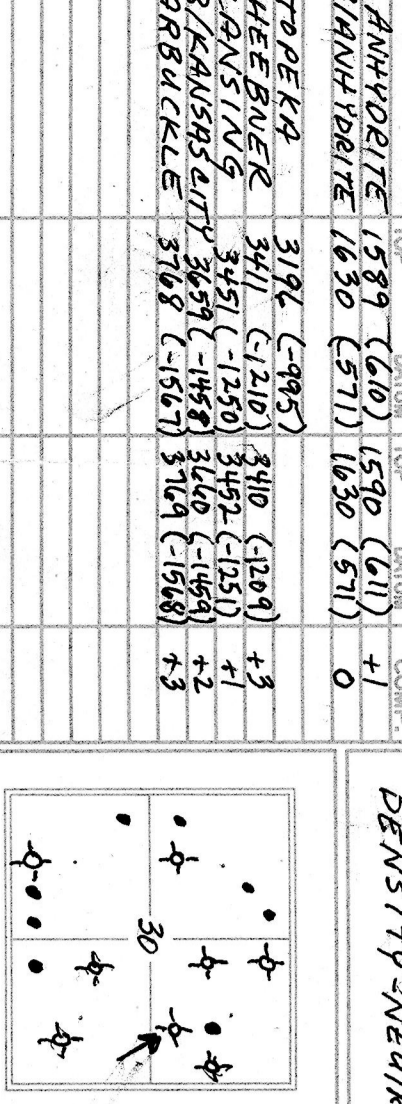 TOP DATUM TOP DATUM COMP.
ANHYDRITE 1589 (610) 1590 (611) +1
/ANHYDRITE 1630 (571) 1630 (571) 0
TOPEKA 3196 (-995)
HEEBNER 3411 (-1210) 3410 (-1209) +3
LANSING 3451 (-1250) 3452 (-1251) +1
/KANSAS CITY 3659 (-1458) 3660 (-1459) +2
ARBUCKLE 3768 (-1567) 3769 (-1568) +3
30